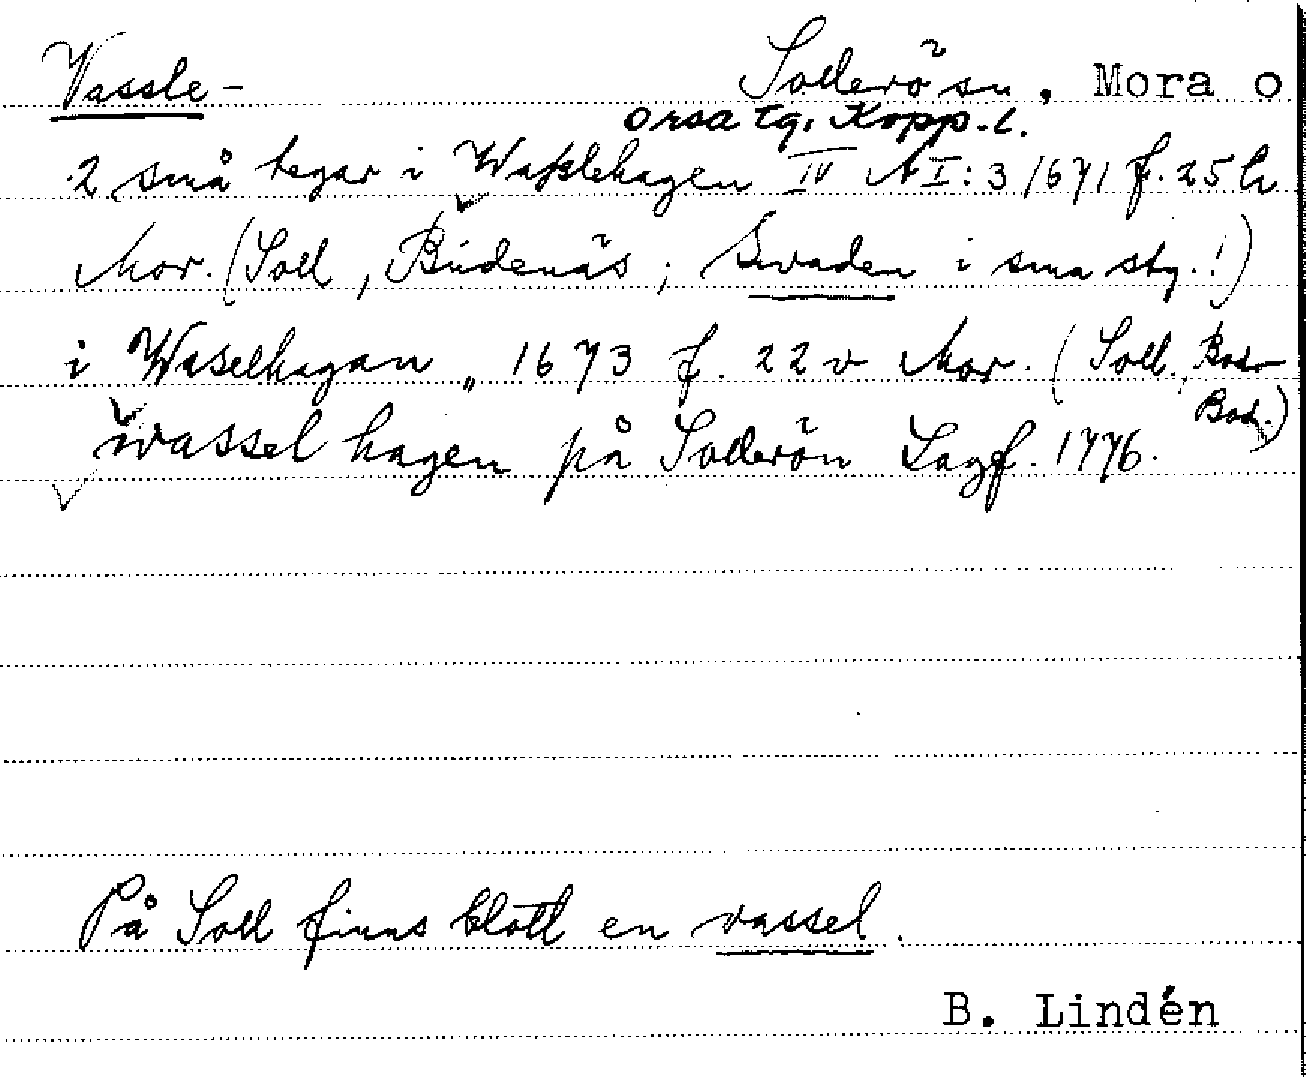 Vassle- Sollerö sn, Mora o
Orsa tg. Kopp. l.
2 små tegar i Wasslehagen IV A I:3 1671 f. 25 b
Mor. (Soll, Budenäs; Svaden i små sty.!)
i Waselhagan „ 1673 f. 22 v Mor. (Soll.,
Bod.)
wassel hagen på Sollerön Lagf. 1776.
På Soll finns blott en vassel.
B. Lindén